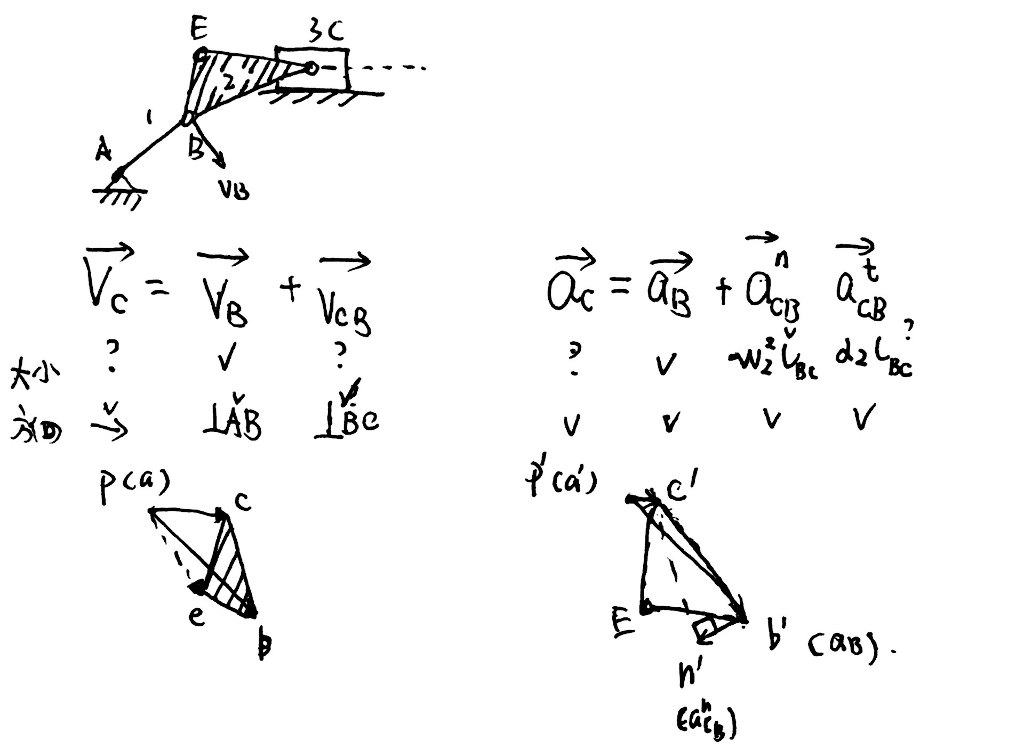 E
3C
2
1
A
B
VB
V_C = V_B + V_CB
? ✓ ?
大小
方向 → ⊥AB ⊥BC
p(a)
c
e
b
a_C = a_B + a_CB^n a_CB^t
? ✓ ω_2^2 L_BC α_2 L_BC ?
✓ ✓ ✓ ✓
p'(a')
c'
E
b' (a_B).
n'
(a_CB^n)